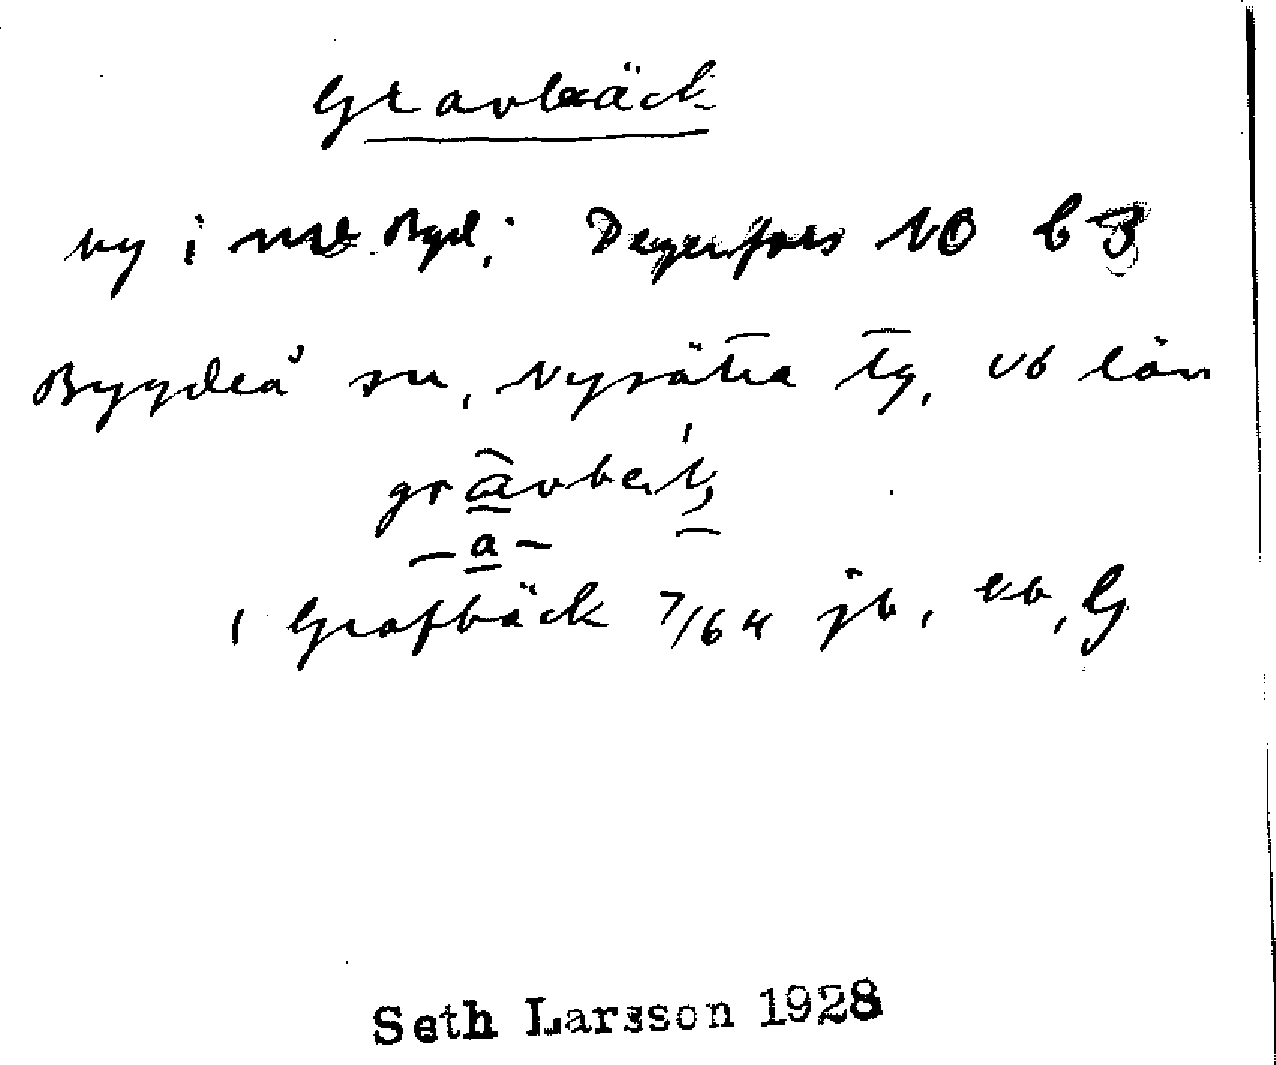 Gravbäck
by i Bygd; Degerfors NO b 3
Bygdeå sn, Nysätra tg, Vb län
gravbek
— a —
1 Grafbäck 7/64 jb, G
Seth Larsson 1928